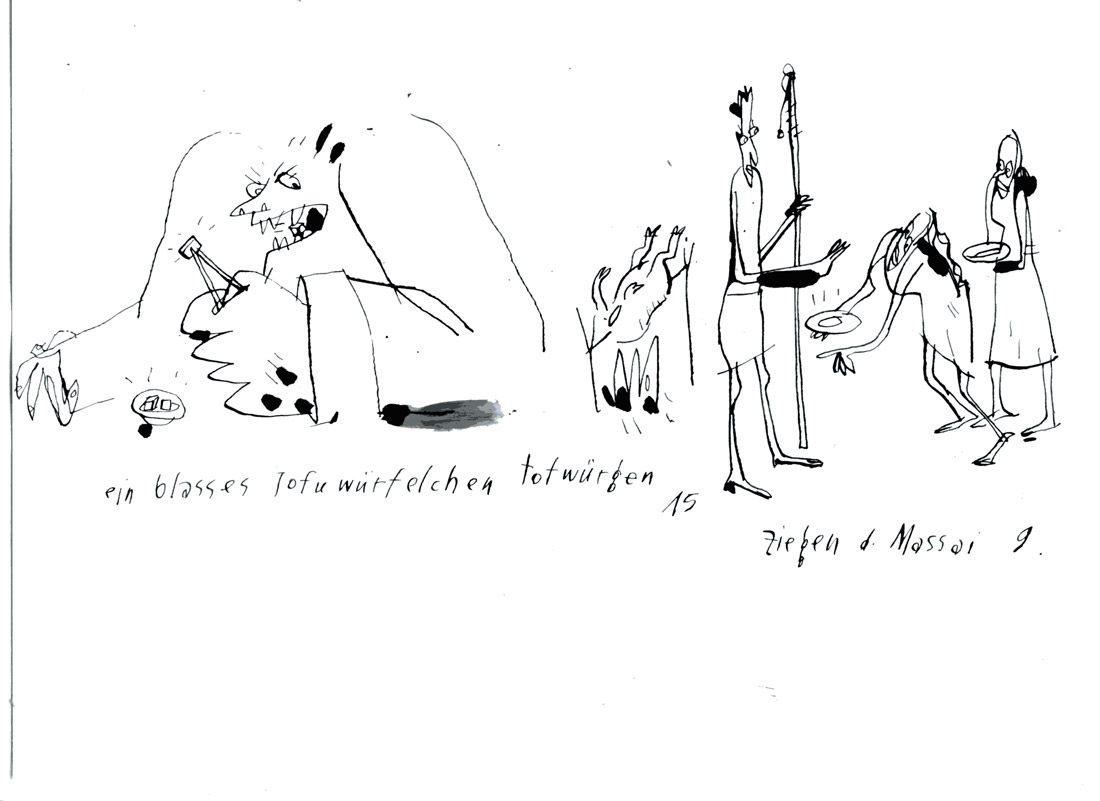 ein blasses Tofuwürfelchen totwürgen
15
Ziegen d. Massai 9.